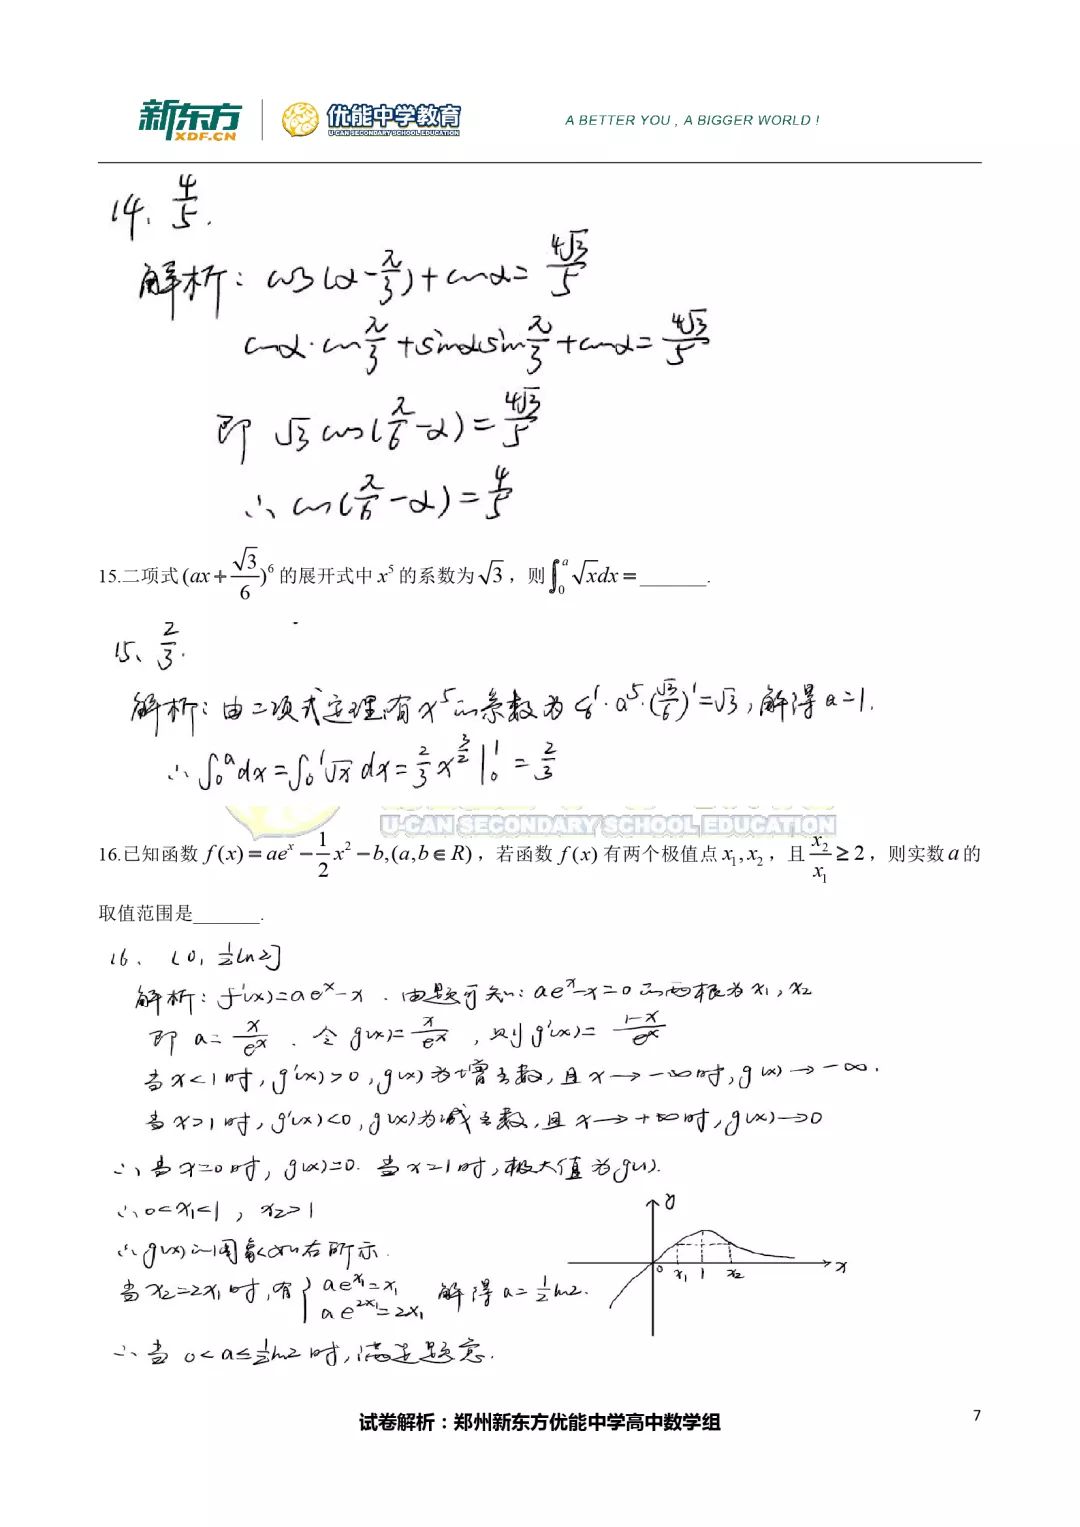 新东方 XDF.CN 优能中学教育 U-CAN SECONDARY SCHOOL EDUCATION A BETTER YOU , A BIGGER WORLD !
14、4/5.
解析：cos(α-π/3)+cosα=4√3/5
cosα·cosπ/3+sinαsinπ/3+cosα=4√3/5
即 √3cos(π/6-α)=4√3/5
∴cos(π/6-α)=4/5
15.二项式(ax+√3/6)⁶的展开式中x⁵的系数为√3，则∫₀ᵃ√xdx=_______.
15、2/3.
解析：由二项式定理,有x⁵的系数为C₆¹·a⁵·(√3/6)¹=√3,解得a=1.
∴∫₀ᵃdx=∫₀¹√x dx=2/3 x^(3/2)|₀¹=2/3
U-CAN SECONDARY SCHOOL EDUCATION
16.已知函数f(x)=aeˣ-1/2x²-b,(a,b∈R)，若函数f(x)有两个极值点x₁,x₂，且x₂/x₁≥2，则实数a的
取值范围是_______.
16、(0,1/2ln2]
解析：f'(x)=aeˣ-x.由题可知：aeˣ-x=0的两根为x₁,x₂
即a=x/eˣ、令g(x)=x/eˣ,则g'(x)=(1-x)/eˣ
当x<1时,g'(x)>0,g(x)为增函数,且x→-∞时,g(x)→-∞.
当x>1时,g'(x)<0,g(x)为减函数,且x→+∞时,g(x)→0
∴当x=0时,g(x)=0.当x=1时,极大值为g(1).
∴0<x₁<1,x₂>1
∴g(x)的图象如右所示.
当x₂=2x₁时,有{ae^(x₁)=x₁
ae^(2x₁)=2x₁ 解得a=1/2ln2.
∴当0<a≤1/2ln2时,满足题意.
y
0 x₁ 1 x₂ x
试卷解析：郑州新东方优能中学高中数学组
7